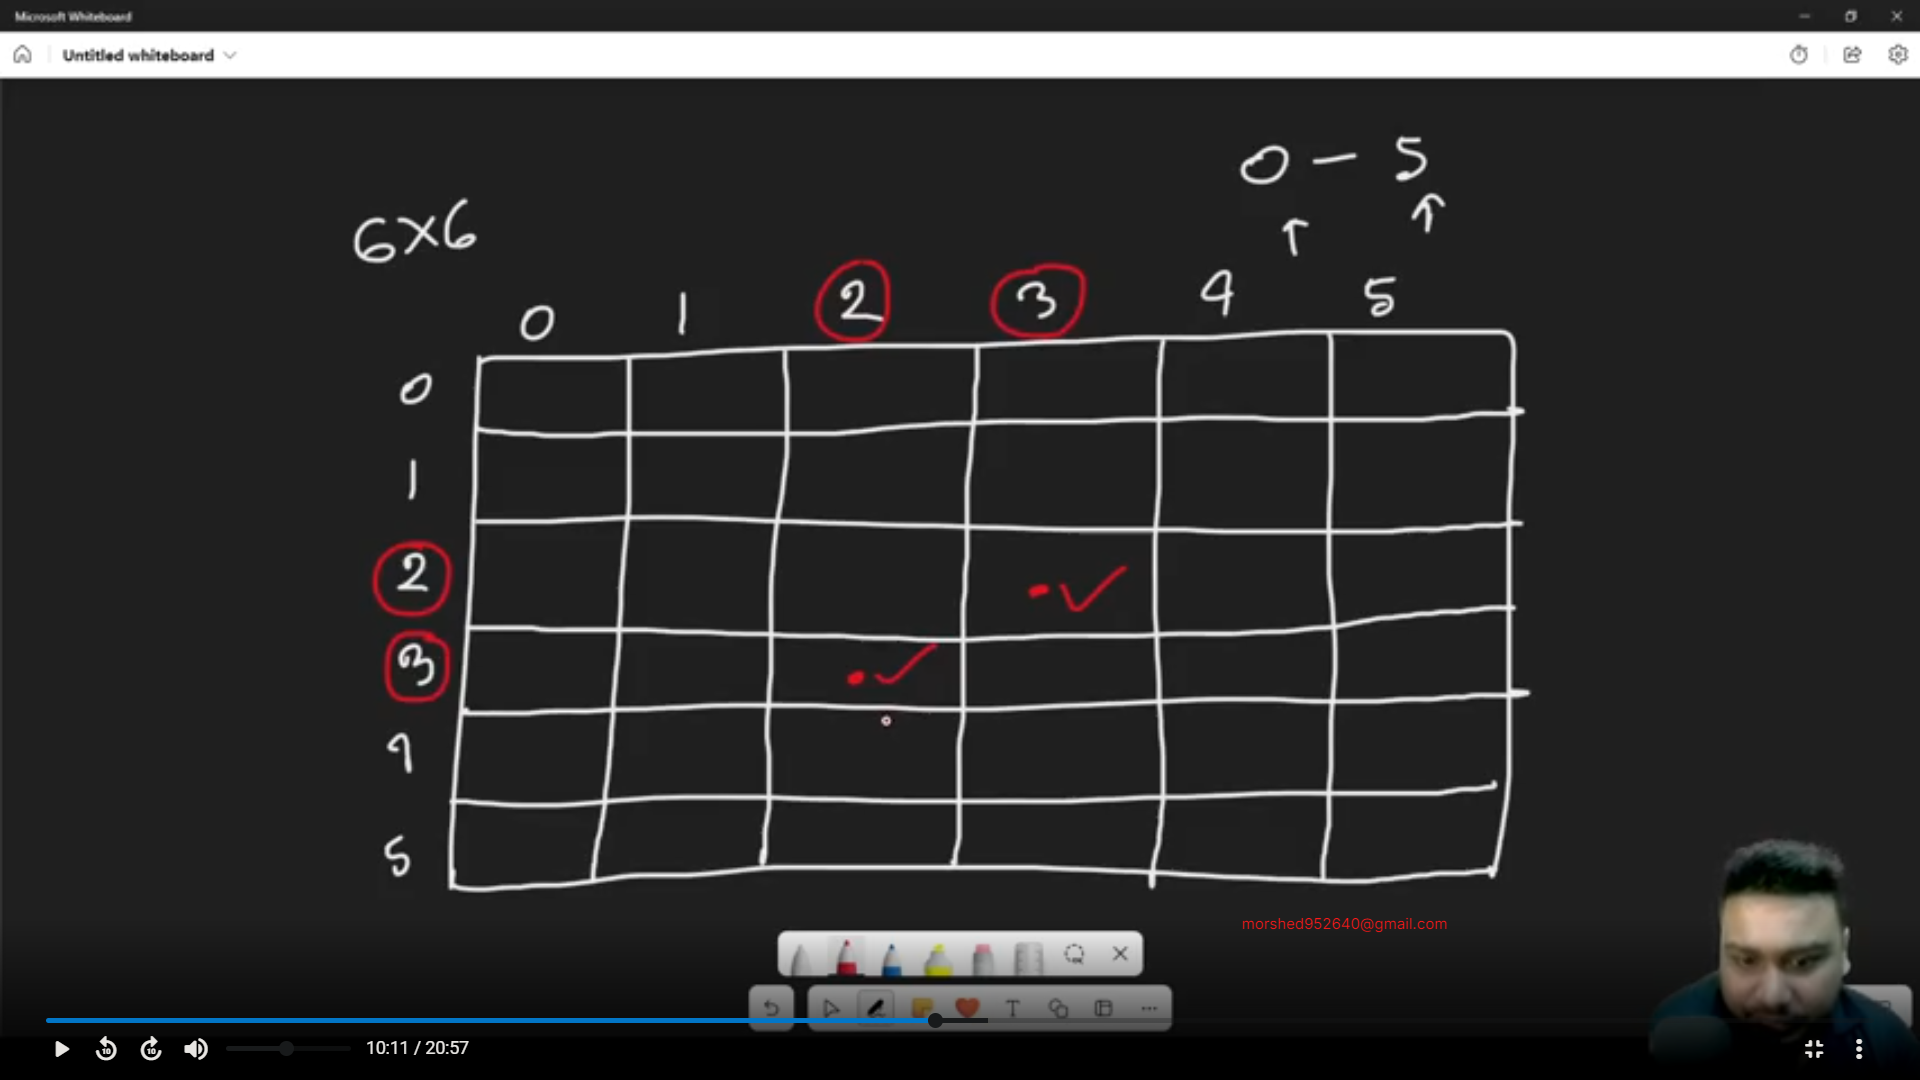 Microsoft Whiteboard
Untitled whiteboard
0 - 5
6x6
0 1 2 3 4 5
0
1
2
3
4
5
morshed952640@gmail.com
T
10 10 10:11 / 20:57